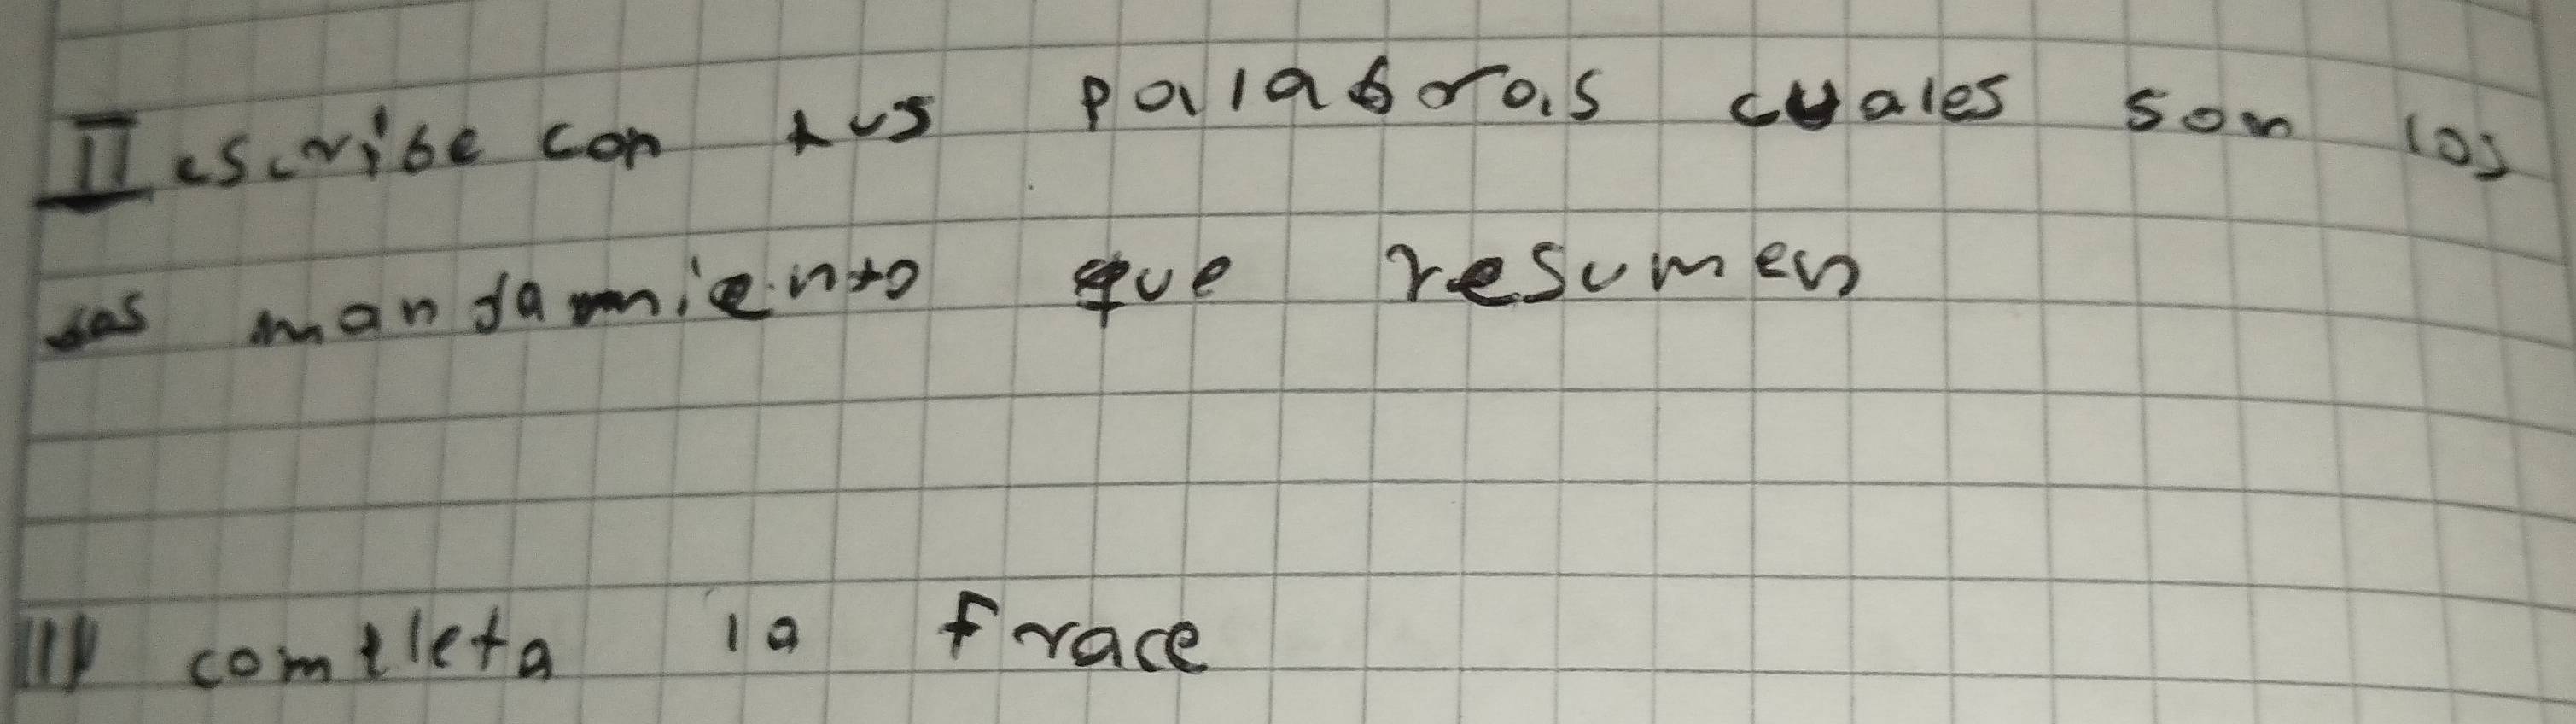 II escribe con tus palabras cuales son los
mandamiento que resumen
III completa la frace